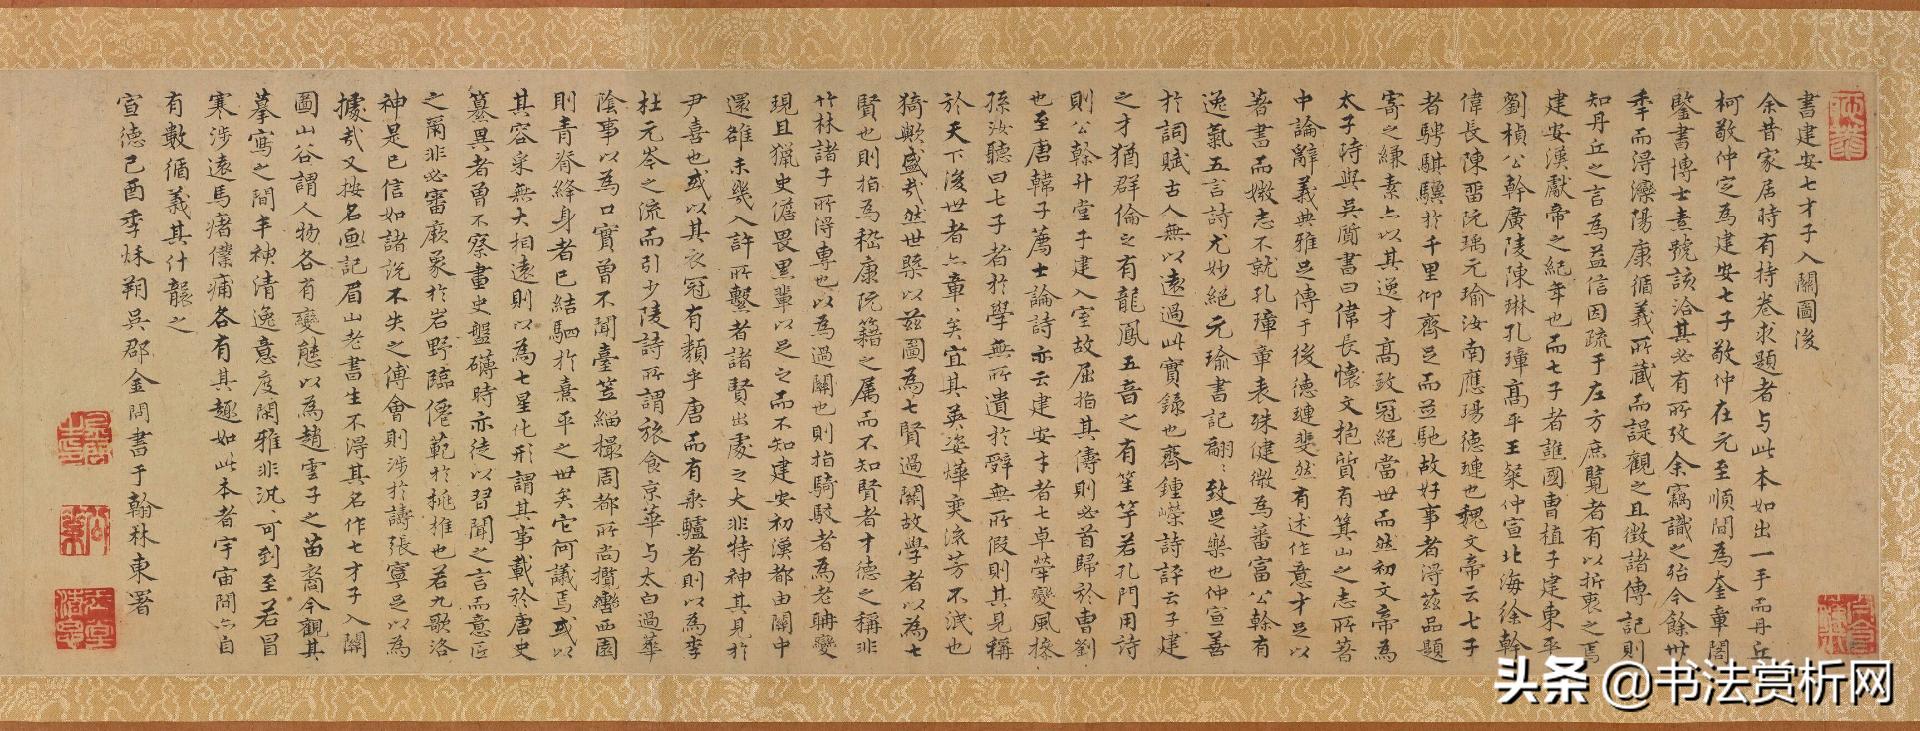 書建安七才子入關圖後
余昔家居時有持卷求題者与此本如出一手而丹丘
柯敬仲定為建安七子敬仲在元至順間為奎章閣
鑒書博士素號該洽其必有所攷余竊識之殆今餘卅
季而得灤陽康循義所藏而諟觀之且徵諸傳記則
知丹丘之言為益信因疏于左方庶覽者有以折衷之焉
建安漢獻帝之紀年也而七子者譙國曹植子建東平
劉楨公幹廣陵陳琳孔璋高平王粲仲宣北海徐幹
偉長陳畱阮瑀元瑜汝南應瑒德璉也魏文帝云七子
者騁騏驥於千里仰齊足而並馳故好事者得茲品題
寄之縑素亦以其逸才高致冠絕當世而然初文帝為
太子時與吳質書曰偉長懷文抱質有箕山之志所著
中論辭義典雅足傳于後德璉斐然有述作意才足以
著書而媺志不就孔璋章表殊健微為蕃富公幹有
逸氣五言詩尤妙絕元瑜書記翩〻致足樂也仲宣善
於詞賦古人無以遠過此實錄也齊鍾嶸詩評云子建
之才猶群倫之有龍鳳五音之有笙竽若孔門用詩
則公幹升堂子建入室故屈指其儔則必首歸於曹劉
也至唐韓子薦士論詩亦云建安才者七卓犖變風操
孫汝聽曰七子者於學無所遺於辭無所假則其見稱
於天下後世者亦章〻矣宜其英姿燁奕流芳不泯也
猗歟盛哉然世槩以茲圖為七賢過關故學者以為七
賢也則指為嵇康阮籍之属而不知賢者才德之稱非
竹林諸子所得専也以為過關也則指騎駮者為老聃變
現且獵史儋畏累輩以足之而不知建安初漢都由關中
還雒未幾入許所繫者諸賢出處之大非特神其見於
尹喜也或以其衣冠有類乎唐而有乘驢者則以為李
杜元岑之流而引少陵詩所謂旅食京華与太白過華
陰事以為口實曾不聞臺笠緇撮周都所尚攬轡西園
則青脊絳身者已結駟於熹平之世矣它何議焉或以
其容采無大相遠則以為七星化形謂其事載於唐史
纂異者曾不察畫史盤礴時亦徒以習聞之言而意匠
之爾非必審厥象於岩野臨僊範於桃椎也若九歌洛
神是已信如諸説不失之傅會則涉於譸張寧足以為
據哉又按名画記眉山老書生不得其名作七才子入關
圖山谷謂人物各有變態以為趙雲子之苗裔今觀其
摹寫之間丰神清逸意度閑雅非汎〻可到至若冒
寒涉遠馬瘏僕痡各有其趣如此本者宇宙間亦自
有數循義其什襲之
宣德己酉季秋朔吳郡金問書于翰林東署
头条 @书法赏析网